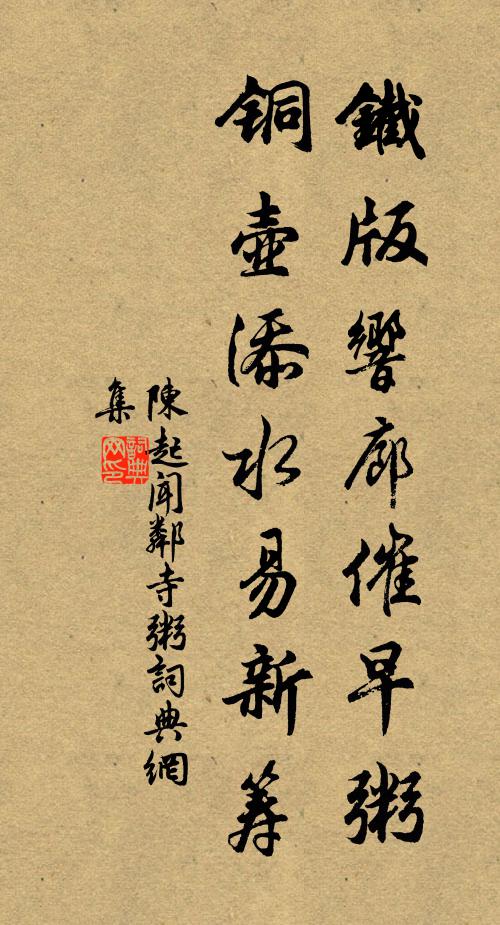 鐵版響廊催早粥
銅壺添水易新筹
陳起聞鄰寺粥詞典網
集
詞典网印